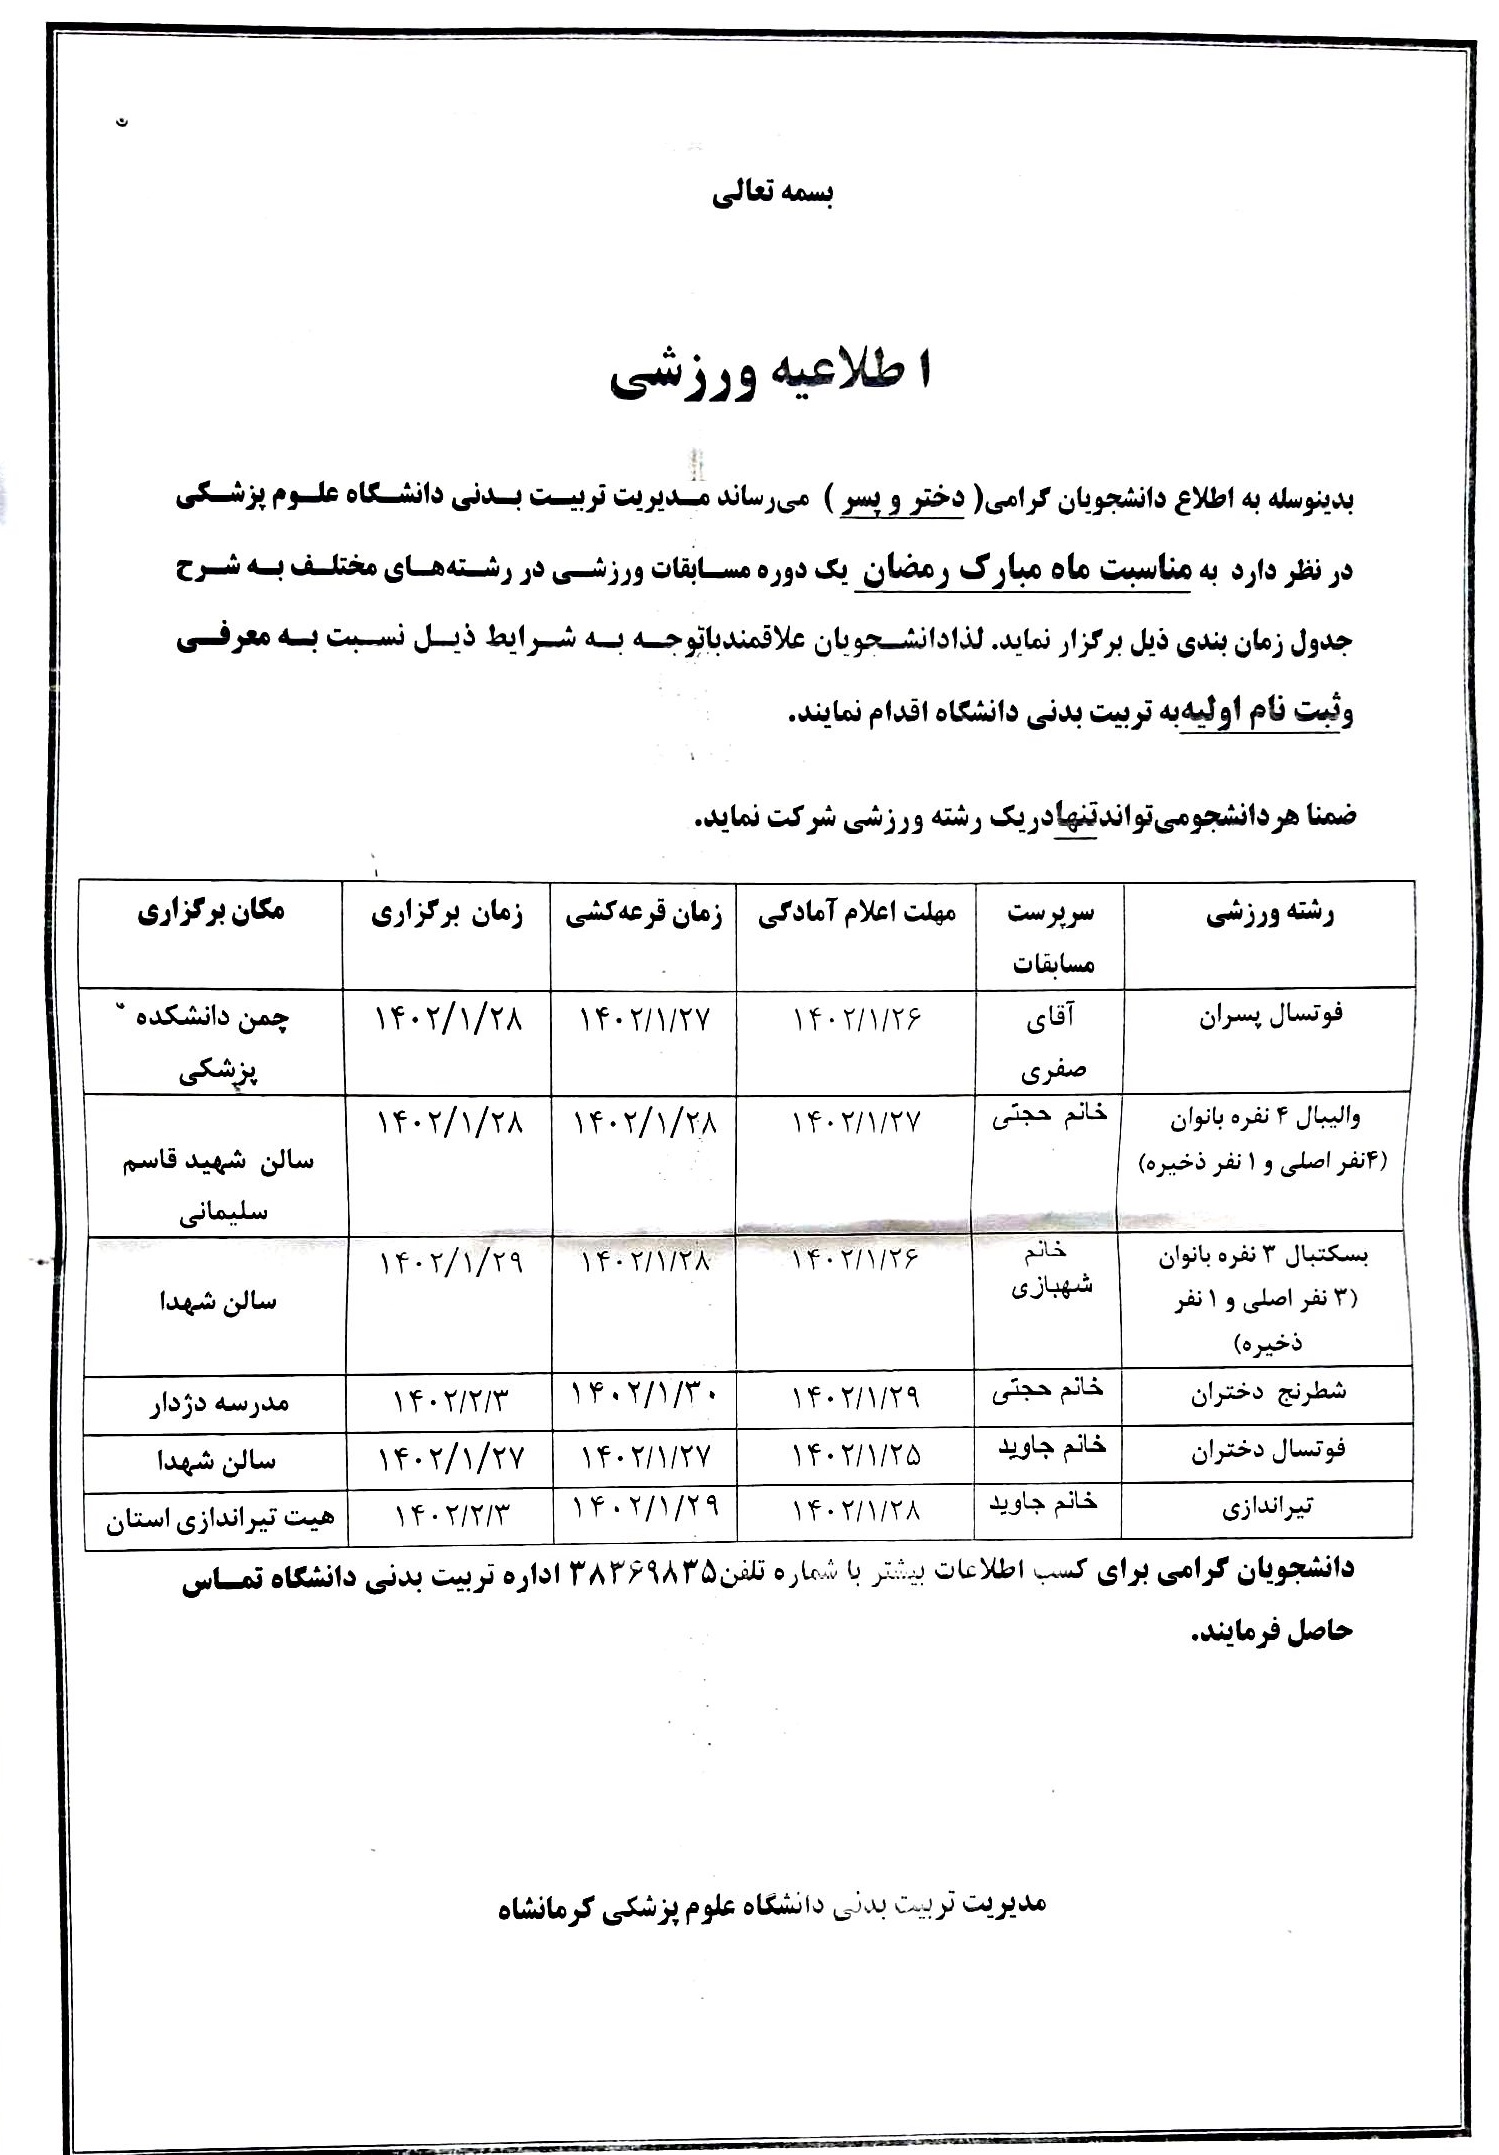 بسمه تعالی
اطلاعیه ورزشی
بدینوسله به اطلاع دانشجویان گرامی( دختر و پسر ) می‌رساند مدیریت تربیت بدنی دانشگاه علوم پزشکی
در نظر دارد به مناسبت ماه مبارک رمضان یک دوره مسابقات ورزشی در رشته‌های مختلف به شرح
جدول زمان بندی ذیل برگزار نماید. لذادانشجویان علاقمندباتوجه به شرایط ذیل نسبت به معرفی
وثبت نام اولیه‌به تربیت بدنی دانشگاه اقدام نمایند.
ضمنا هردانشجومی‌تواندتنهادریک رشته ورزشی شرکت نماید.
رشته ورزشی سرپرست مسابقات مهلت اعلام آمادگی زمان قرعه‌کشی زمان برگزاری مکان برگزاری
فوتسال پسران آقای صفری ۱۴۰۲/۱/۲۶ ۱۴۰۲/۱/۲۷ ۱۴۰۲/۱/۲۸ چمن دانشکده پزشکی
والیبال ۴ نفره بانوان (۴نفر اصلی و ۱ نفر ذخیره) خانم حجتی ۱۴۰۲/۱/۲۷ ۱۴۰۲/۱/۲۸ ۱۴۰۲/۱/۲۸ سالن شهید قاسم سلیمانی
بسکتبال ۳ نفره بانوان (۳ نفر اصلی و ۱ نفر ذخیره) خانم شهبازی ۱۴۰۲/۱/۲۶ ۱۴۰۲/۱/۲۸ ۱۴۰۲/۱/۲۹ سالن شهدا
شطرنج دختران خانم حجتی ۱۴۰۲/۱/۲۹ ۱۴۰۲/۱/۳۰ ۱۴۰۲/۲/۳ مدرسه دژدار
فوتسال دختران خانم جاوید ۱۴۰۲/۱/۲۵ ۱۴۰۲/۱/۲۷ ۱۴۰۲/۱/۲۷ سالن شهدا
تیراندازی خانم جاوید ۱۴۰۲/۱/۲۸ ۱۴۰۲/۱/۲۹ ۱۴۰۲/۲/۳ هیت تیراندازی استان
دانشجویان گرامی برای کسب اطلاعات بیشتر با شماره تلفن۳۸۳۶۹۸۳۵ اداره تربیت بدنی دانشگاه تماس
حاصل فرمایند.
مدیریت تربیت بدنی دانشگاه علوم پزشکی کرمانشاه